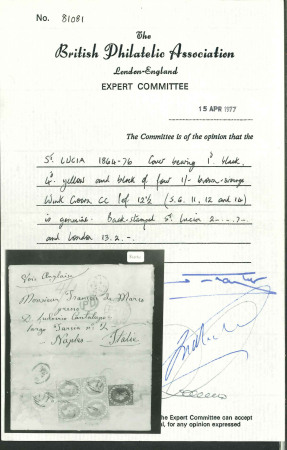 No. 81081
The
British Philatelic Association
London-England
EXPERT COMMITTEE
15 APR 1977
The Committee is of the opinion that the
St LUCIA 1864-76 Cover bearing 1d black,
4d yellow and block of four 1/- brown-orange
Wmk Crown CC Perf 12½ (S.G. 11, 12 and 14)
is genuine. Back-stamped St Lucia 2-..-7-
and London 13.2.-.
Voie Anglaise
Monsieur François de Marco
presso
Largo
Naples – Italie
the Expert Committee can accept
al, for any opinion expressed